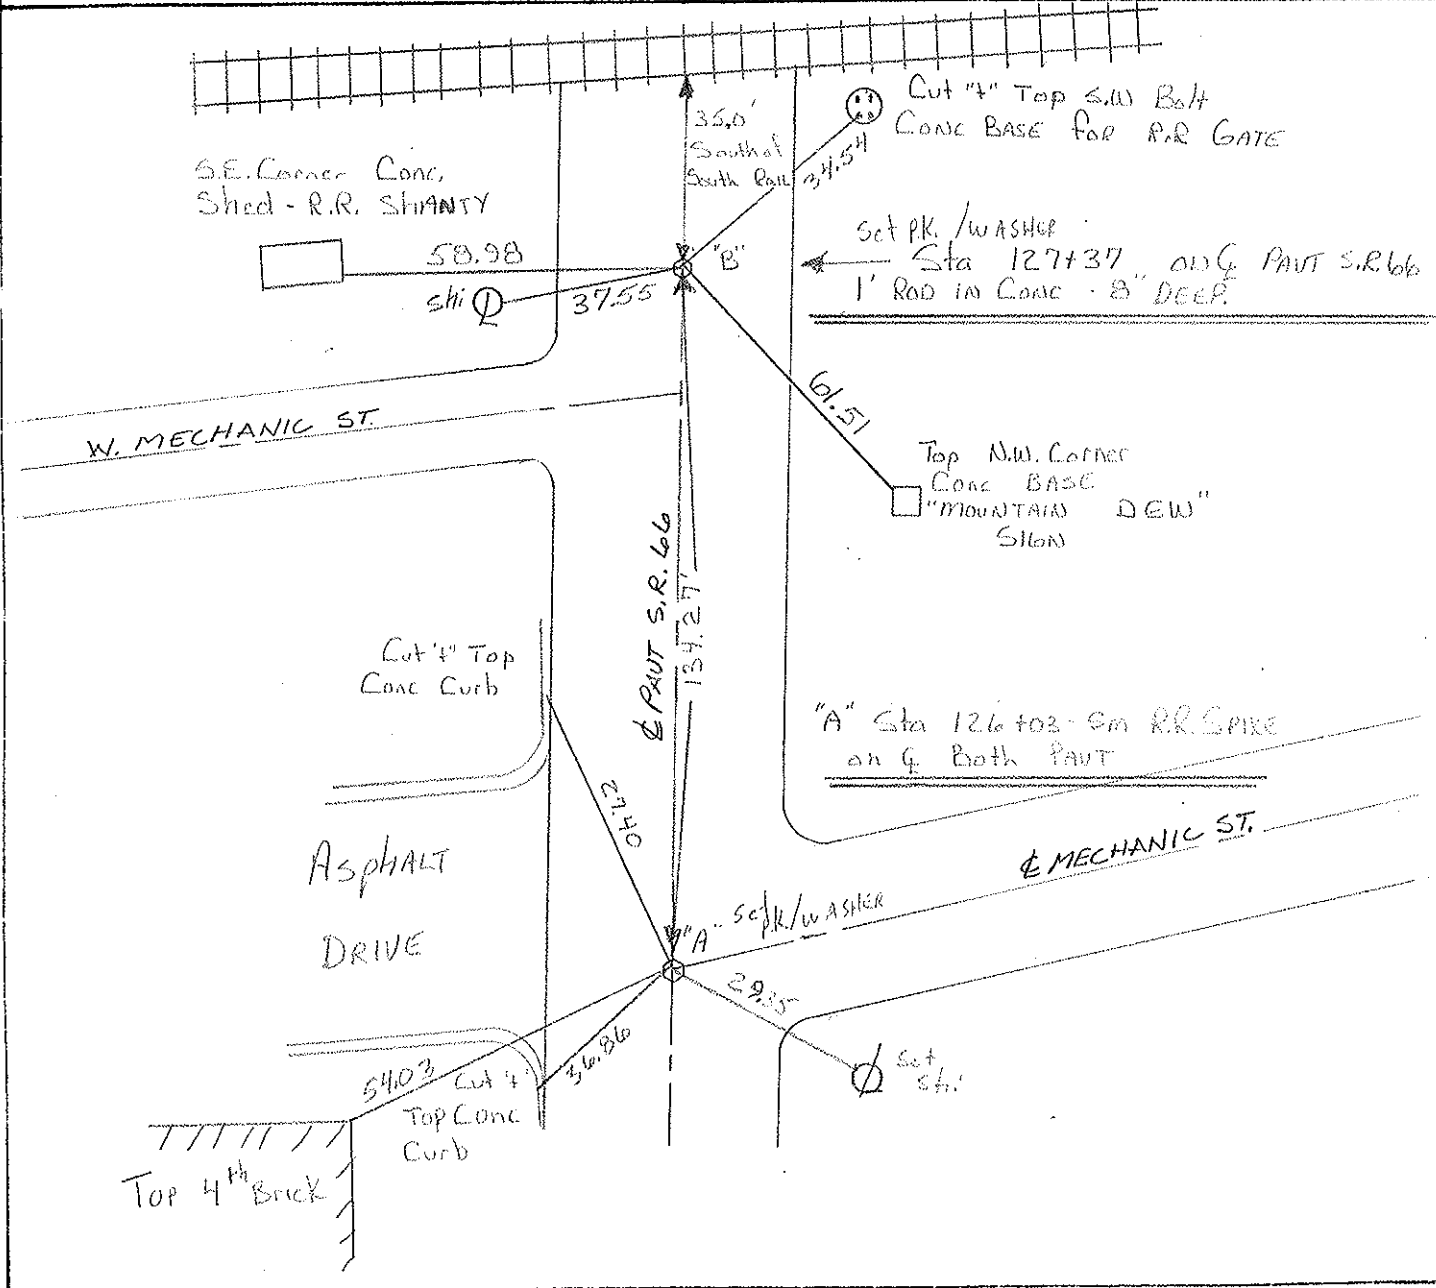 Cut "+" Top S.W Bolt
CONC BASE for R.R GATE
35.0'
South of
South Rail
34.54
S.E. Corner Conc.
Shed - R.R. SHANTY
58.98
"B"
Set P.K. /WASHER
Sta 127+37 ON ℄ PAVT S.R. 66
1' ROD IN CONC - 8" DEEP.
shi
37.55
61.51
W. MECHANIC ST.
Top N.W. Corner
Conc BASE
"MOUNTAIN DEW"
SIGN
℄ PAVT S.R. 66
134.27'
Cut '+' Top
Conc Curb
"A" Sta 126+03 - Fm R.R. SPIKE
on ℄ Both PAVT
27.40
℄ MECHANIC ST.
Asphalt
DRIVE
"A" Set p.k./WASHER
29.35
54.03
36.86
Cut '+'
Top Conc
Curb
Set
Shi
Top 4th Brick